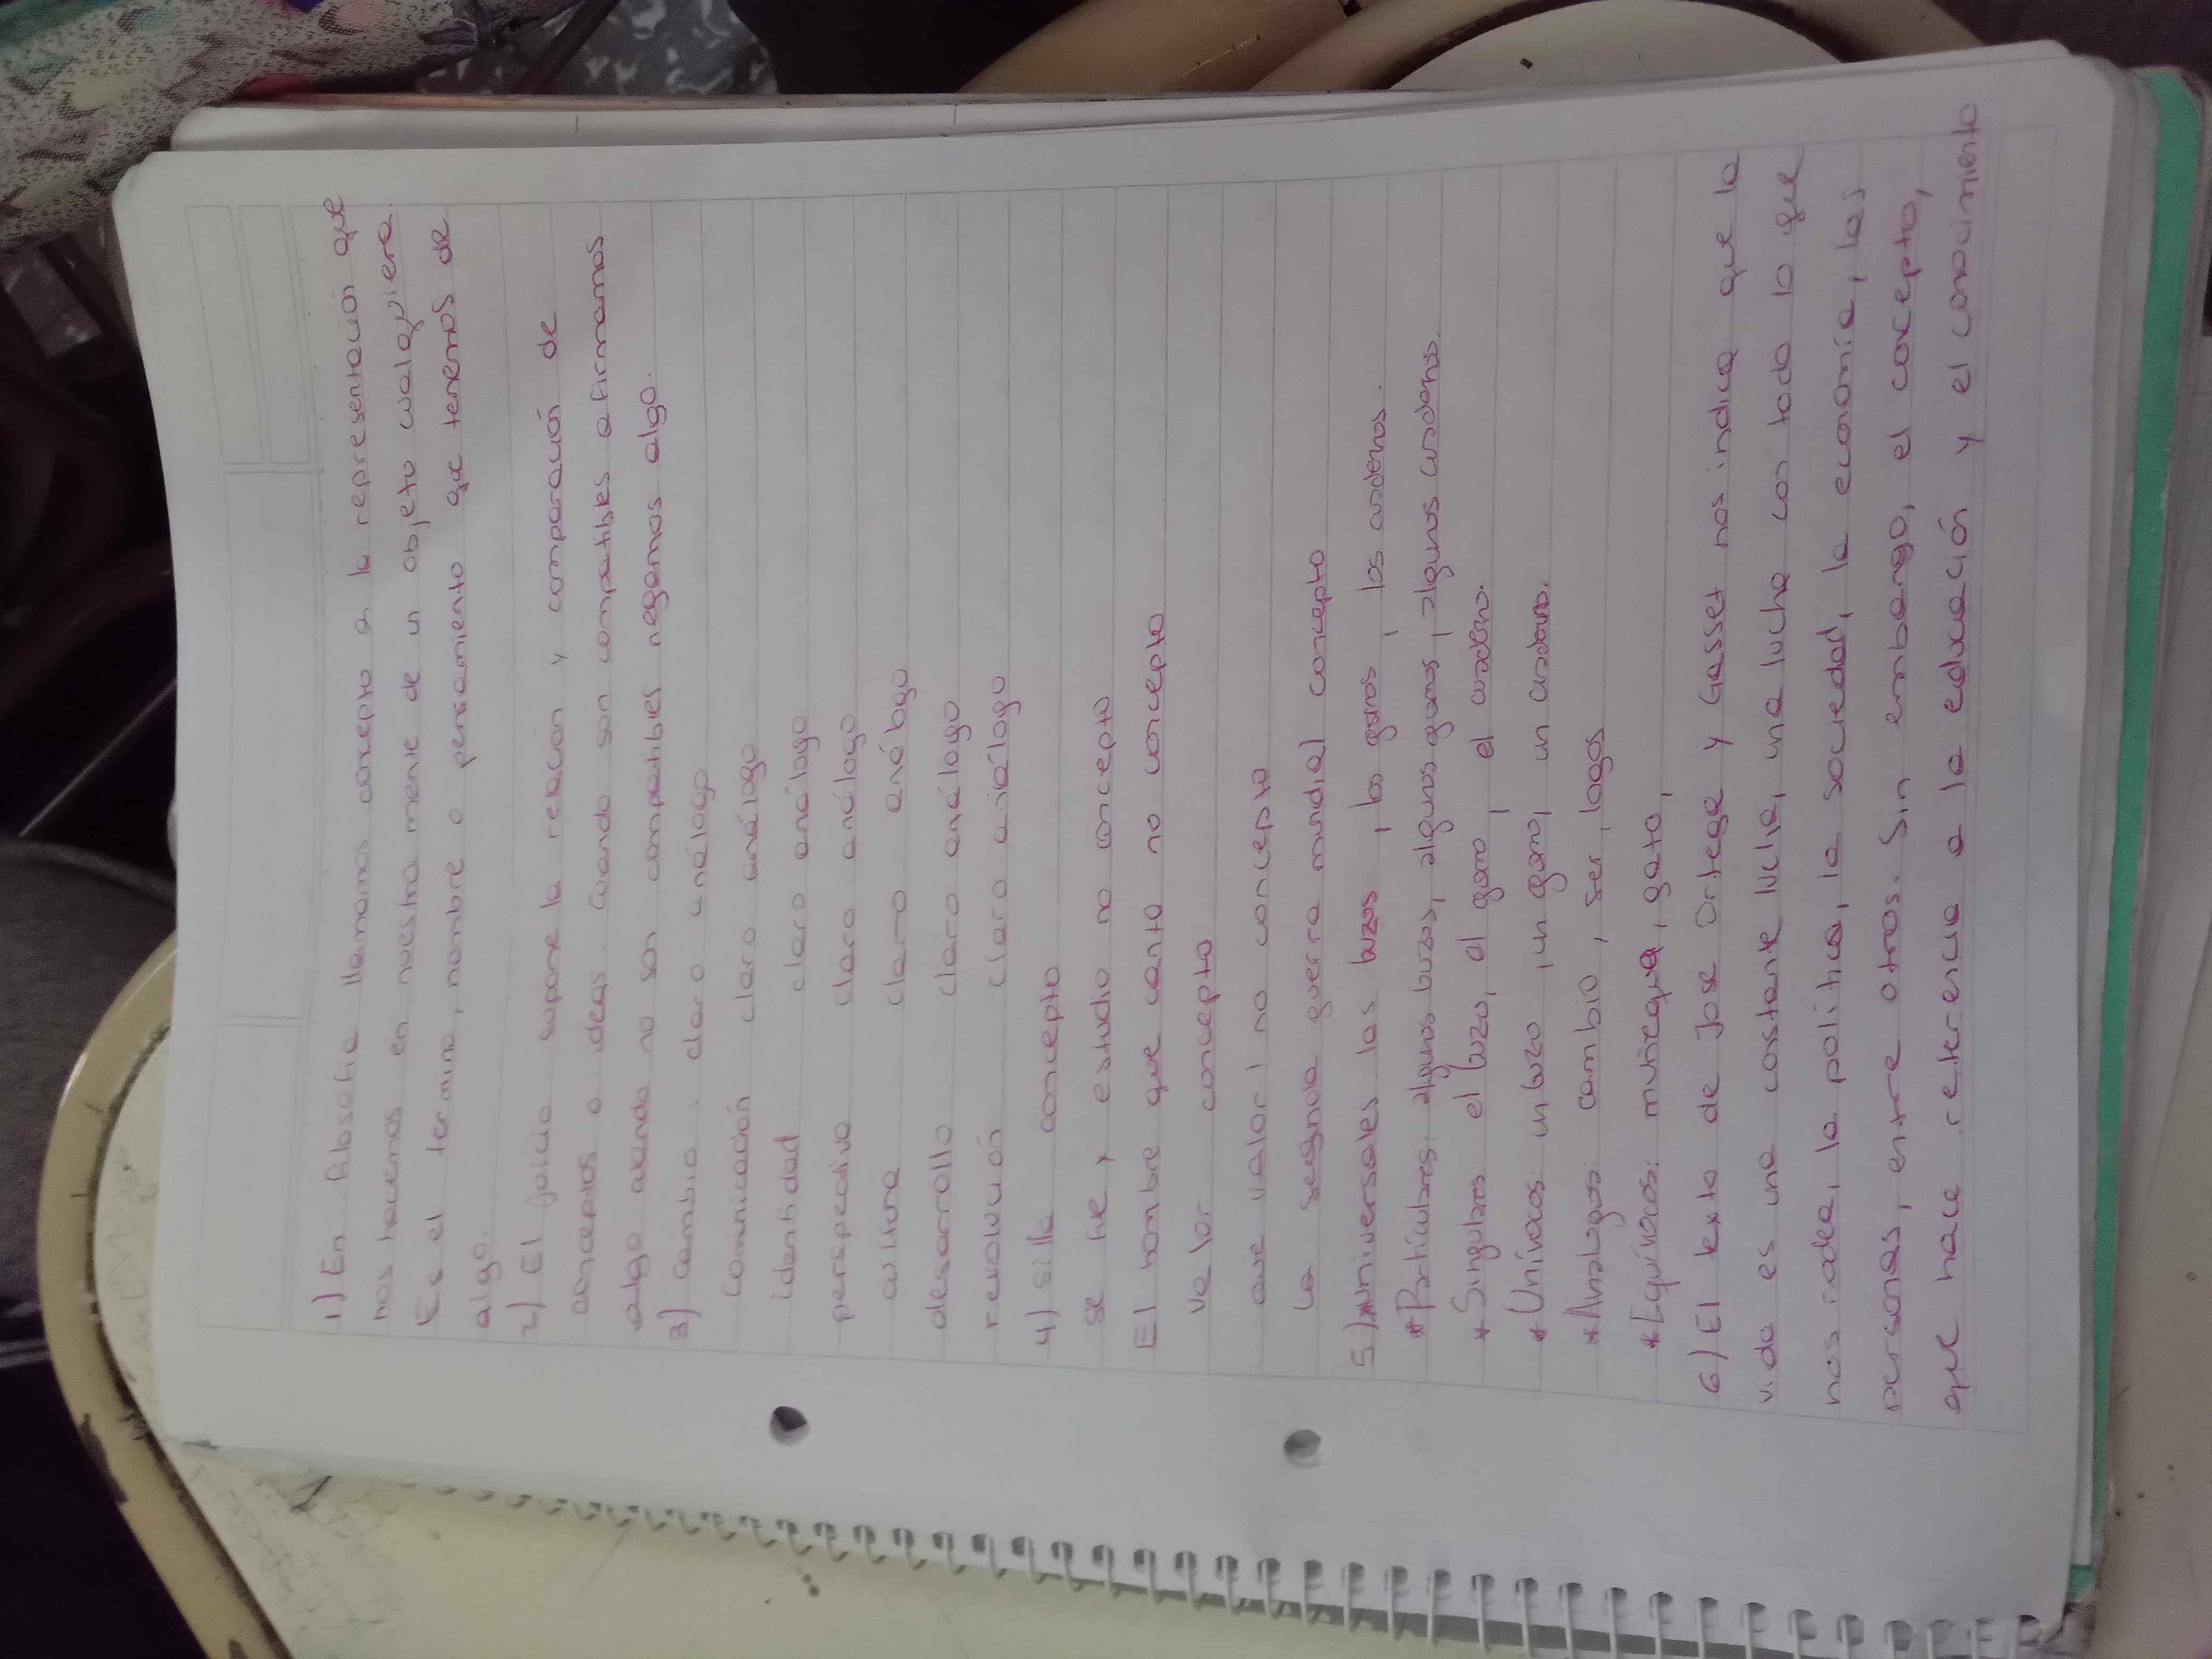 1) En filosofia llamamos concepto a la representación que
nos hacemos en nuestra mente de un objeto cualquiera.
Es el termino, nombre o pensamiento que tenemos de
algo.
2) El juicio supone la relación y comparación de
conceptos o ideas. Cuando son compatibles afirmamos
algo cuando no son compatibles negamos algo.
3) cambio . claro análogo
comunicación claro análogo
identidad claro análogo
perspectiva claro análogo
cultura claro análogo
desarrollo claro análogo
revolución claro análogo
4) silla concepto
se fue y estudio no concepto
El hombre que canta no concepto
valor concepto
que valor! no concepto
la segunda guerra mundial concepto
5) *universales los buzos , los gorros , los cuadernos.
* Particulares: algunos buzos, algunos gorros, algunos cuadernos.
* Singulares el buzo, el gorro , el cuaderno.
* Unívocos: un buzo , un gorro, un cuaderno.
* Analogos: cambio , ser , logos
* Equívocos: muñequa, gato,
6) El texto de Jose Ortega y Gasset nos indica que la
vida es una costante lucha, una lucha con todo lo que
nos rodea, la politica, la sociedad, la economía, las
personas, entre otros. Sin embargo, el concepto,
que hace referencia a la educación y el conocimiento